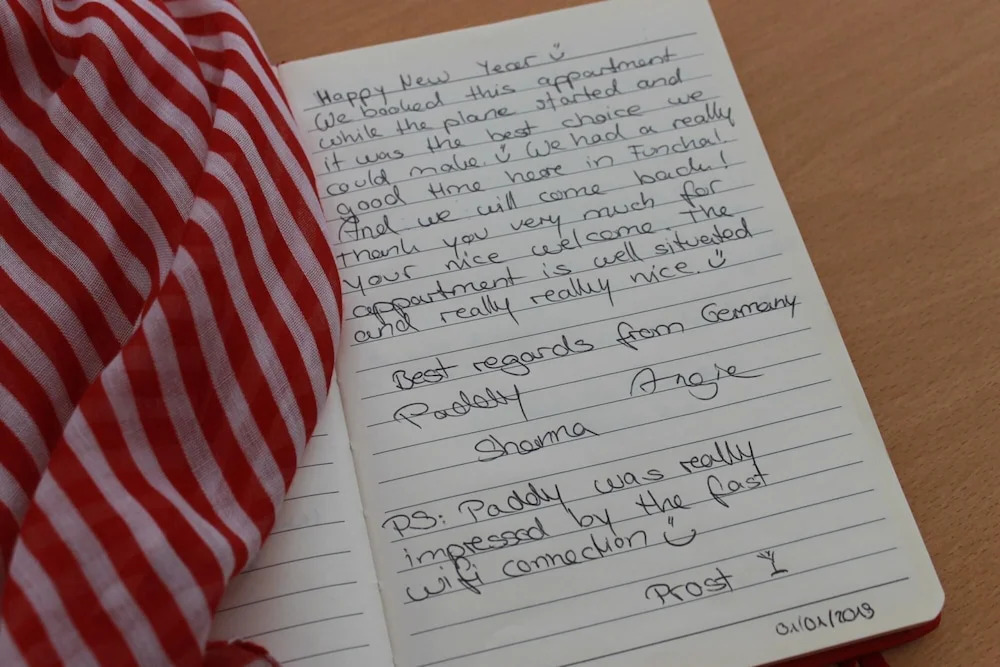 Happy New Year
We booked this appartment
while the plane started and
it was the best choice we
could make. We had a really
good time here in Funchal.
And we will come back!
Thank you very much for
your nice welcome. The
appartment is well situated
and really really nice.
Best regards from Germany
Paddy Angie
Sharma
PS: Paddy was really
impressed by the fast
wifi connection
Prost
01/01/2019